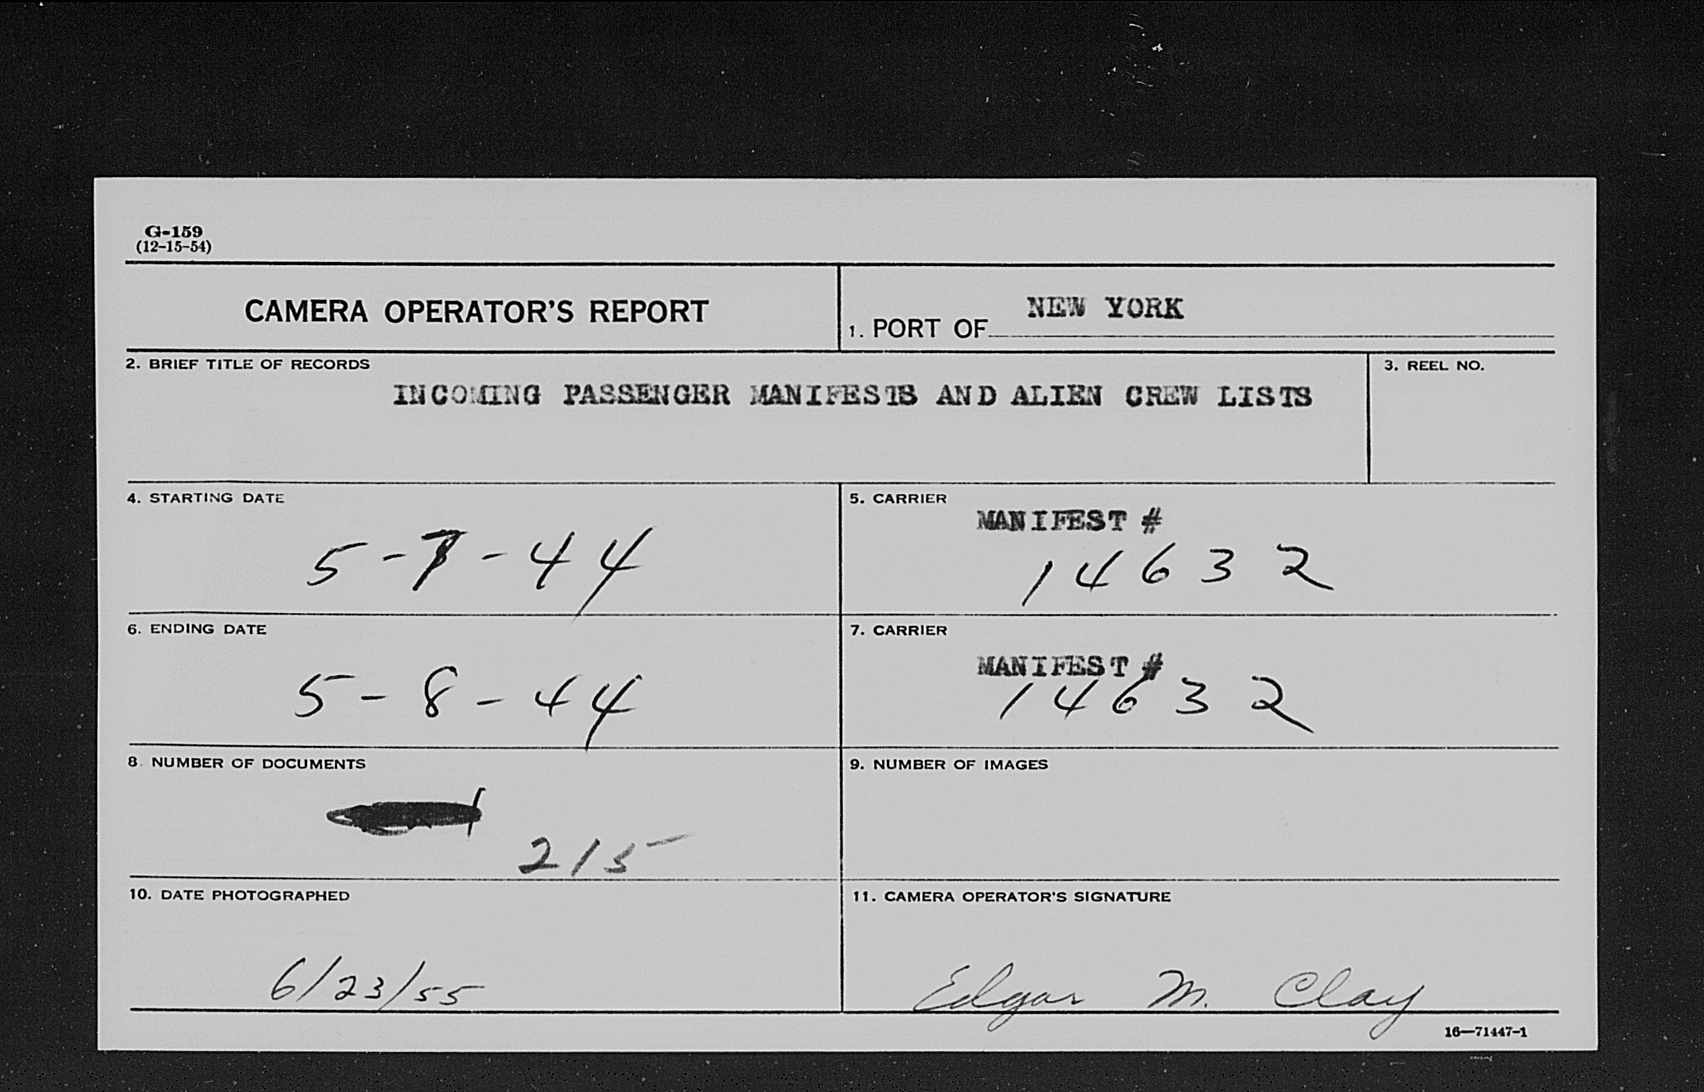 G-159
(12-15-54)
CAMERA OPERATOR'S REPORT
1. PORT OF NEW YORK
2. BRIEF TITLE OF RECORDS
INCOMING PASSENGER MANIFESTS AND ALIEN CREW LISTS
3. REEL NO.
4. STARTING DATE
5-7-44
5. CARRIER
MANIFEST #
14632
6. ENDING DATE
5-8-44
7. CARRIER
MANIFEST #
14632
8. NUMBER OF DOCUMENTS
215
9. NUMBER OF IMAGES
10. DATE PHOTOGRAPHED
6/23/55
11. CAMERA OPERATOR'S SIGNATURE
Edgar M. Clay
16—71447-1